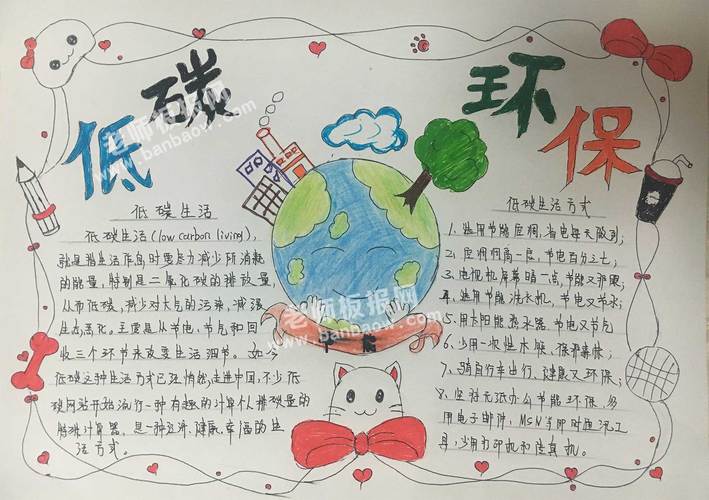 低碳
环保
低碳生活
低碳生活(low carbon living),
就是指生活作息时要尽力减少所消耗
的能量,特别是二氧化碳的排放量,
从而低碳,减少对大气的污染,减缓
生态恶化。主要是从节电,节气和回
收三个环节来改变生活细节。如今
低碳这种生活方式已经悄然走进中国,不少低
碳网站开始流行一种有趣的计算个人排碳量的
特殊计算器,是一种经济、健康、幸福的生
活方式。
节能
低碳生活方式
1、选用节能空调,省电每天做到;
2、空调调高一度,节电百分之七;
3、电视机屏幕暗一点,节能又护眼;
4、选用节能洗衣机,节电又节水;
5、用太阳能热水器,节电又节气
6、少用一次性木筷,保护森林;
7、骑自行车出行,健康又环保;
8、坚持无纸办公节能环保,多
用电子邮件,MSN等即时通讯工
具,少用打印机和传真机。
老师板报网
www.banbaow.com
老师板报网
www.banbaow.com
老师板报网
www.banbaow.com